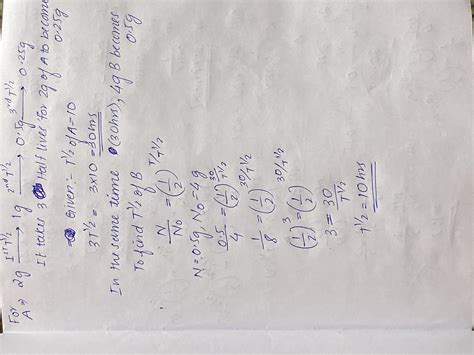 For 1st T½ 2nd T½ 3rd T½
A ⇒ 2g → 1g → 0.5g → 0.25g
It takes 3 Half lives for 2g of A to become
0.25g
Given:- T½ of A = 10
3 T½ = 3x10 = 30hrs
In the same time (30hrs), 4g B becomes
0.5g
To find T½ of B
N/N₀ = (1/2)^T/T½
N = 0.5g, N₀ = 4g
0.5/4 = (1/2)^30/T½
1/8 = (1/2)^30/T½
(1/2)^3 = (1/2)^30/T½
3 = 30/T½
T½ = 10hrs